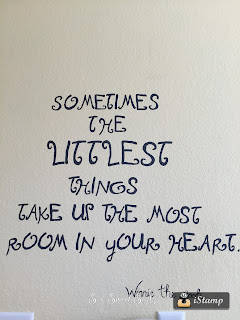 SOMETIMES
THE
LITTLEST
THINGS
TAKE UP THE MOST
ROOM IN YOUR HEART.
Winnie the
iStamp